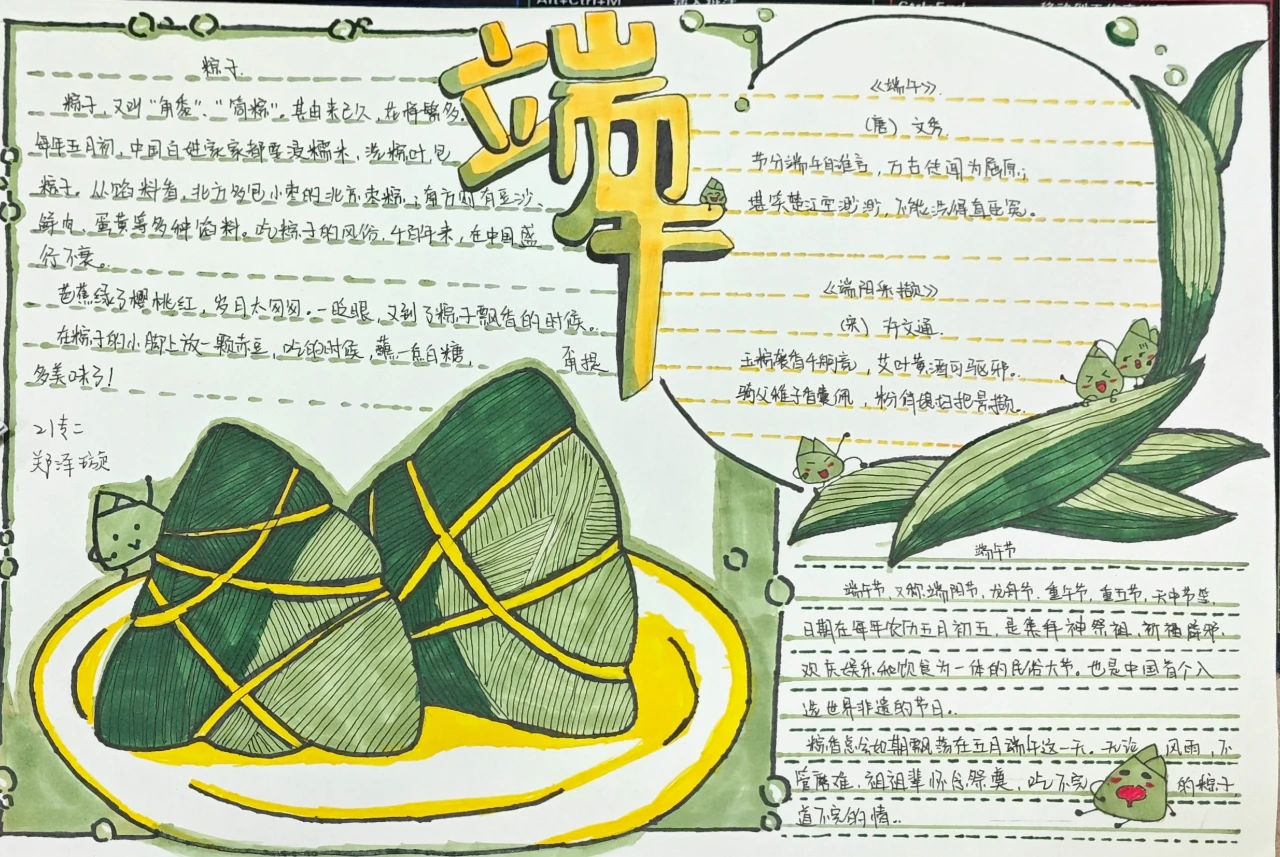 端午
粽子
粽子,又叫"角黍"、"筒粽"。其由来已久,花样繁多.
每年五月初,中国百姓家家都要浸糯米,洗粽叶,包
粽子。从馅料看,北方多包小枣的北京枣粽;南方则有豆沙、
鲜肉、蛋黄等多种馅料。吃粽子的风俗,千百年来,在中国盛
行不衰。
芭蕉绿了樱桃红,岁月太匆匆。一眨眼,又到了粽子飘香的时候。
在粽子的小脚上放一颗赤豆,吃的时候,蘸一点白糖,
多美味了!
甭提
21专二
郑泽璇
《端午》
(唐) 文秀
节分端午自谁言,万古传闻为屈原;
堪笑楚江空渺渺,不能洗得直臣冤。
《端阳采撷》
(宋)
玉粽袭香千舸竞,艾叶黄酒可驱邪。
骑父稚子香囊佩,粉俏媳妇把景撷。
端午节
端午节,又称端阳节,龙舟节,重午节,重五节,天中节等,
日期在每年农历五月初五,是集拜神祭祖,祈福辟邪,
欢庆娱乐和饮食为一体的民俗大节。也是中国首个入
选世界非遗的节日。
粽香总会如期飘荡在五月端午这一天,无论 风雨,不
管磨难,祖祖辈怀念祭奠,吃不完 的粽子
道不完的情..
Alt+Ctrl+M